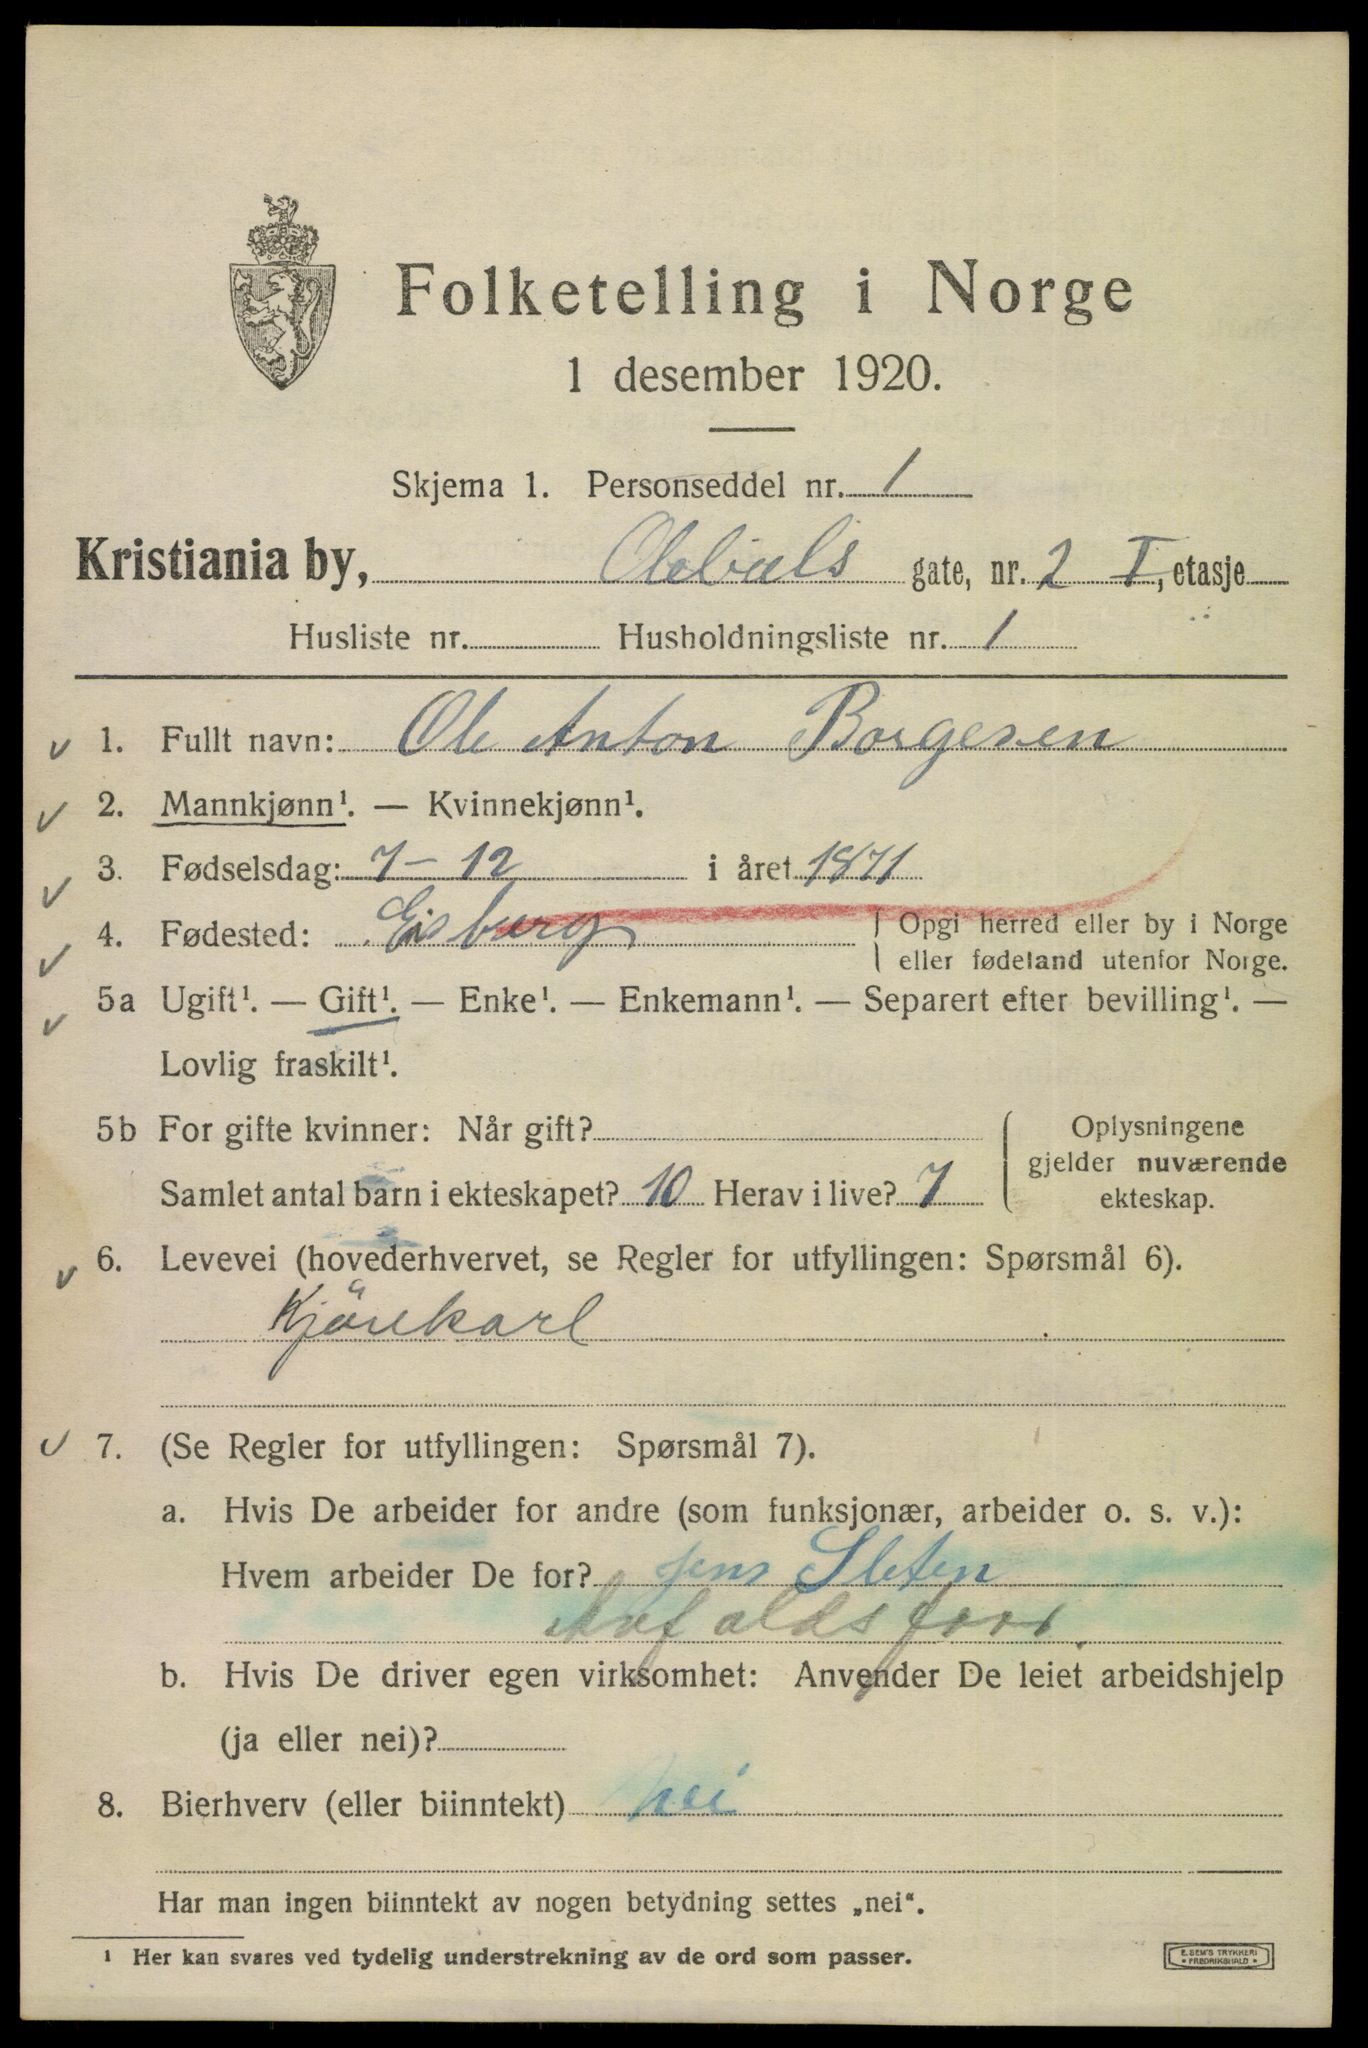 Folketelling i Norge
1 desember 1920.
Skjema 1. Personseddel nr. 1
Kristiania by, Olebuls gate, nr. 2 I, etasje
Husliste nr. Husholdningsliste nr. 1
1. Fullt navn: Ole Anton Borgesen
2. Mannkjønn¹. — Kvinnekjønn¹.
3. Fødselsdag: 7 – 12 i året 1871
4. Fødested: Eisburg
Opgi herred eller by i Norge
eller fødeland utenfor Norge.
5a Ugift¹. — Gift¹. — Enke¹. — Enkemann¹. — Separert efter bevilling¹. —
Lovlig fraskilt¹.
5b For gifte kvinner: Når gift?
Samlet antal barn i ekteskapet? 10 Herav i live? 7
Oplysningene
gjelder nuværende
ekteskap.
6. Levevei (hovederhvervet, se Regler for utfyllingen: Spørsmål 6).
Kjörekarl
7. (Se Regler for utfyllingen: Spørsmål 7).
a. Hvis De arbeider for andre (som funksjonær, arbeider o. s. v.):
Hvem arbeider De for? Jens Sleten
b. Hvis De driver egen virksomhet: Anvender De leiet arbeidshjelp
(ja eller nei)?
8. Bierhverv (eller biinntekt) nei
Har man ingen biinntekt av nogen betydning settes „nei“.
¹ Her kan svares ved tydelig understrekning av de ord som passer.
E. SEM'S TRYKKERI
* FREDRIKSHALD *